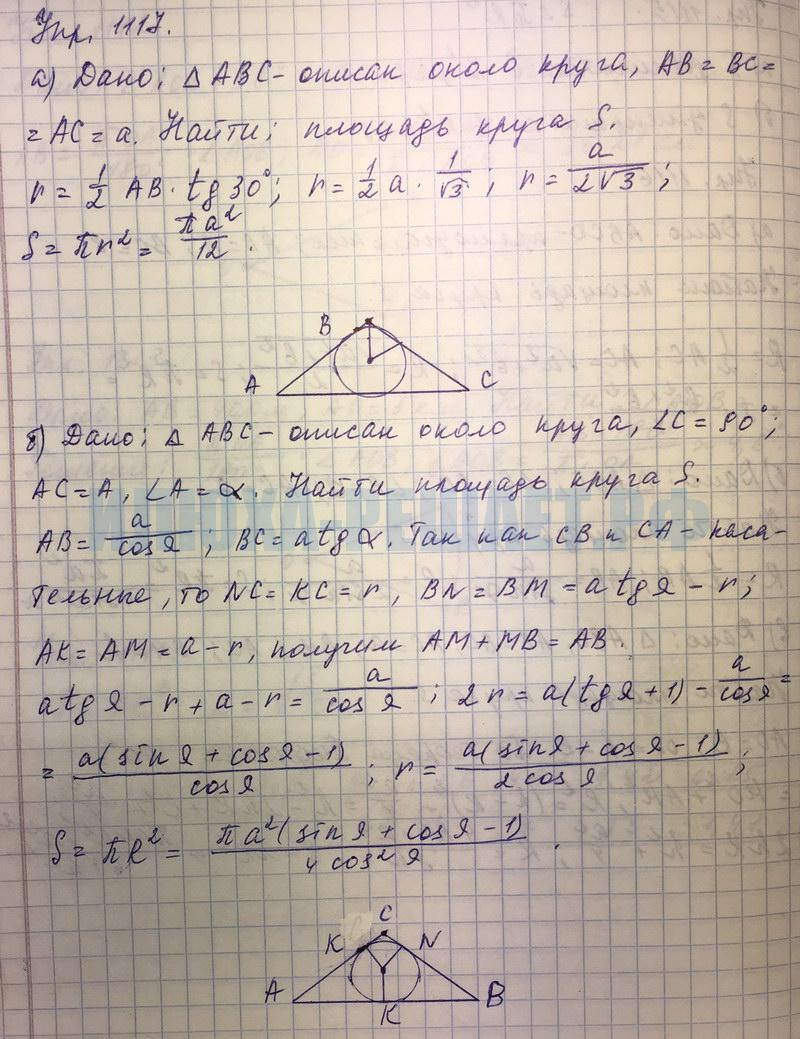 Упр. 1117.
а) Дано: △ ABC - описан около круга, AB = BC =
= AC = a. Найти: площадь круга S.
r = 1/2 AB · tg 30°; r = 1/2 a · 1/√3; r = a/2√3;
S = πr² = πa²/12.
B
A
C
б) Дано: △ ABC - описан около круга, ∠C = 90°;
AC = A, ∠A = α. Найти площадь круга S.
AB = a/cos α; BC = a tg α. Так как CB и CA - каса-
тельные, то NC = KC = r, BN = BM = a tg α - r;
AK = AM = a - r, получим AM + MB = AB.
a tg α - r + a - r = a/cos α; 2r = a(tg α + 1) - a/cos α =
= a(sin α + cos α - 1)/cos α; r = a(sin α + cos α - 1)/2 cos α;
S = πR² = πa²(sin α + cos α - 1)/4 cos² α.
C
K
N
A
B
K